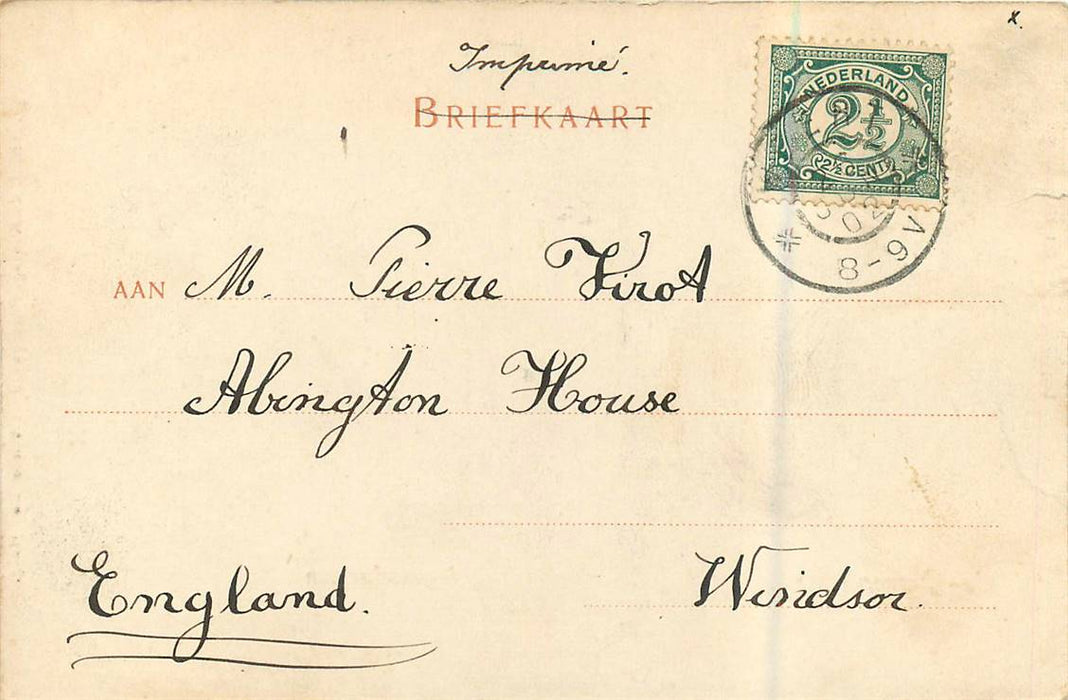 x.
Imprimé.
BRIEFKAART
NEDERLAND
2½
2½ CENT
02
8-9V
AAN M. Pierre Virot
Abington House
Windsor.
England.